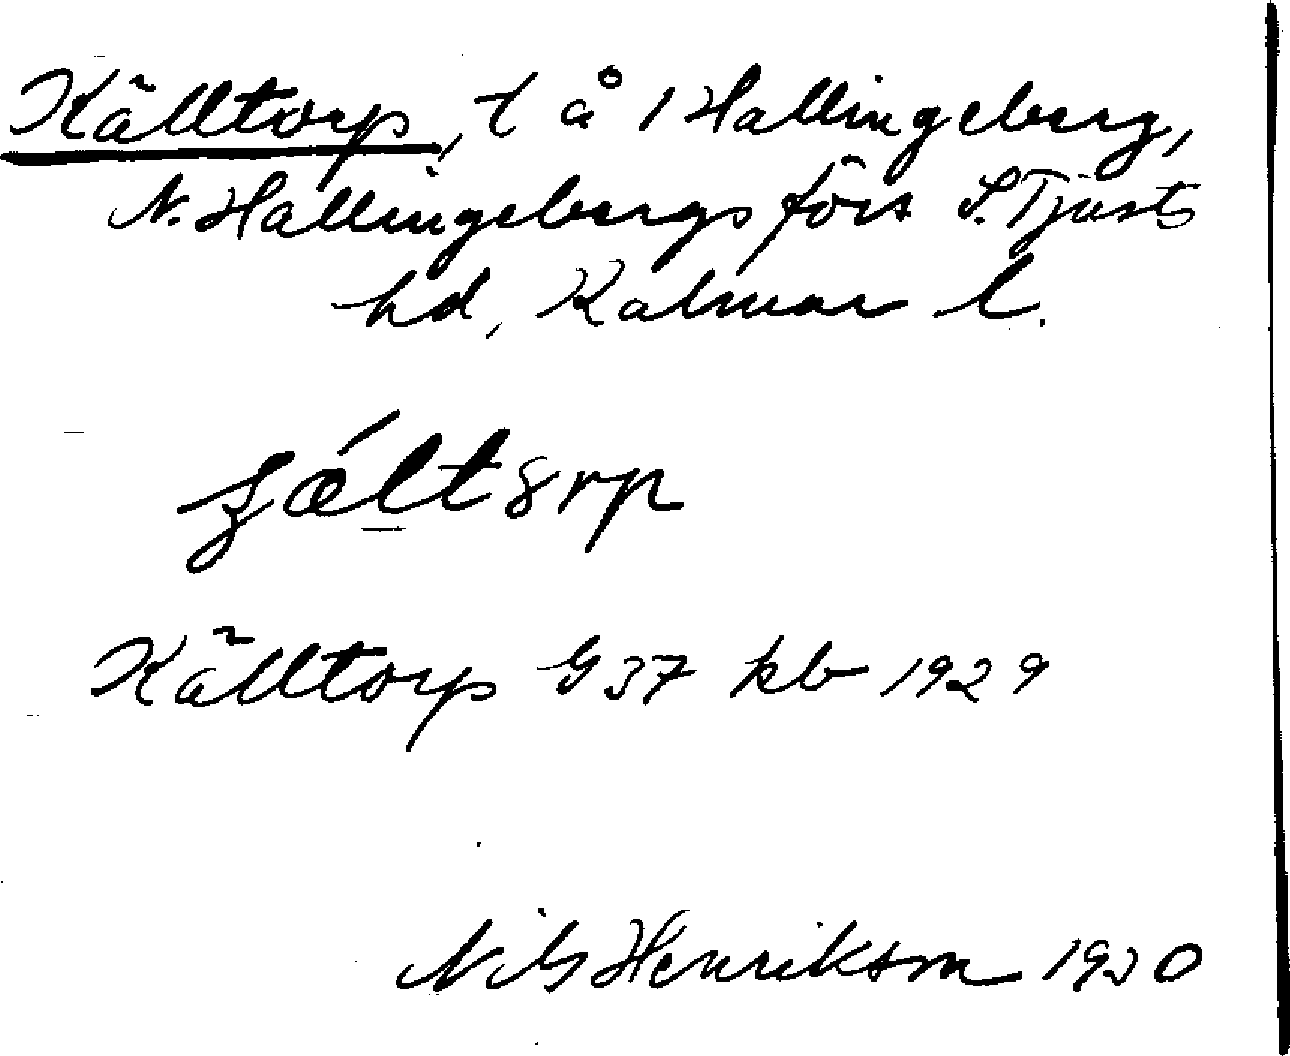 Källtorp, t å 1 Hallingeberg,
N. Hallingebergs förs S. Tjusts
hd, Kalmar l.
Källtorp G 37 kb 1929
Nils Henrikson 1930